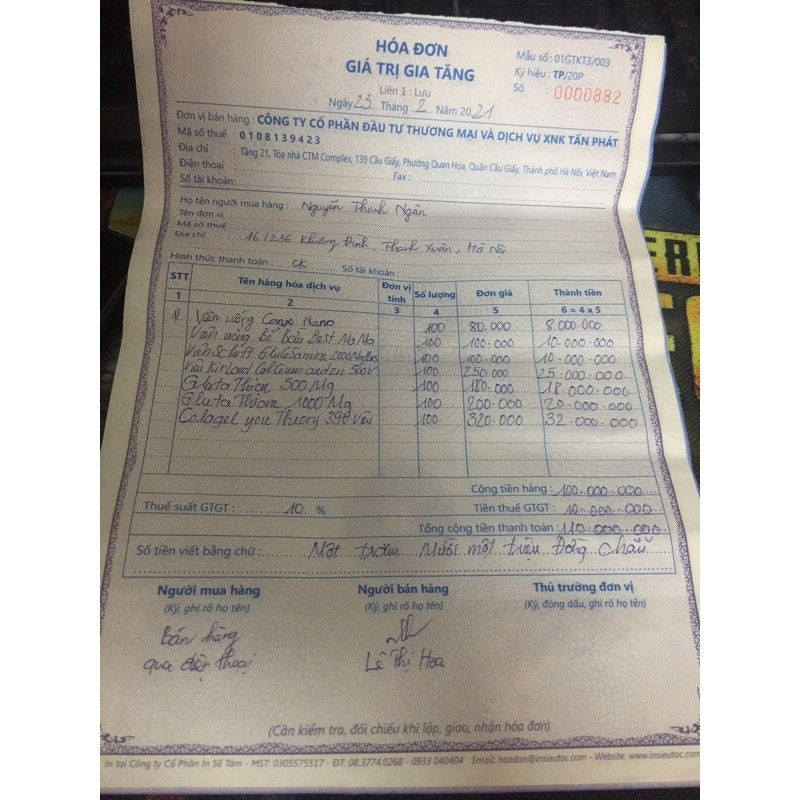 HÓA ĐƠN
GIÁ TRỊ GIA TĂNG
Liên 1 : Lưu
Ngày 23 Tháng 2 Năm 2021
Mẫu số : 01GTKT3/003
Ký hiệu : TP/20P
Số : 0000882
Đơn vị bán hàng : CÔNG TY CỔ PHẦN ĐẦU TƯ THƯƠNG MẠI VÀ DỊCH VỤ XNK TẤN PHÁT
Mã số thuế : 0108139423
Địa chỉ : Tầng 21, Tòa nhà CTM Complex, 139 Cầu Giấy, Phường Quan Hoa, Quận Cầu Giấy, Thành phố Hà Nội, Việt Nam
Điện thoại : Fax :
Số tài khoản:
Họ tên người mua hàng : Nguyễn Thanh Ngân
Tên đơn vị :
Mã số thuế :
Địa chỉ : 16/236 Khương Đình, Thanh Xuân, Hà Nội
Hình thức thanh toán : CK Số tài khoản:
STT Tên hàng hóa dịch vụ Đơn vị tính Số lượng Đơn giá Thành tiền
1 2 3 4 5 6 = 4 x 5
1 Viên uống Canxi Nano 100 80.000 8.000.000
Viên uống Bổ Bầu Best MaMa 100 100.000 10.000.000
Viên Schiff Glucosamine 2000Mg 100 100.000 10.000.000
Viên Kirland Calcium and zn 500v 100 250.000 25.000.000
Gluta Thion 500 Mg 100 180.000 18.000.000
Gluta Thione 1000 Mg 100 200.000 20.000.000
Colagel you Theory 390 Viên 100 320.000 32.000.000
Cộng tiền hàng : 100.000.000
Thuế suất GTGT : 10 % Tiền thuế GTGT : 10.000.000
Tổng cộng tiền thanh toán : 110.000.000
Số tiền viết bằng chữ : Một trăm Mười một triệu Đồng Chẵn
Người mua hàng Người bán hàng Thủ trưởng đơn vị
(Ký, ghi rõ họ tên) (Ký, ghi rõ họ tên) (Ký, đóng dấu, ghi rõ họ tên)
Bán hàng
qua điện thoại Lê Thị Hoa
(Cần kiểm tra, đối chiếu khi lập, giao, nhận hóa đơn)
In tại Công ty Cổ Phần In Số Tám - MST: 0305575517 - ĐT: 08.3774.0268 - 0933 040404 Email: hoadon@insieutoc.com - Website: www.insieutoc.com